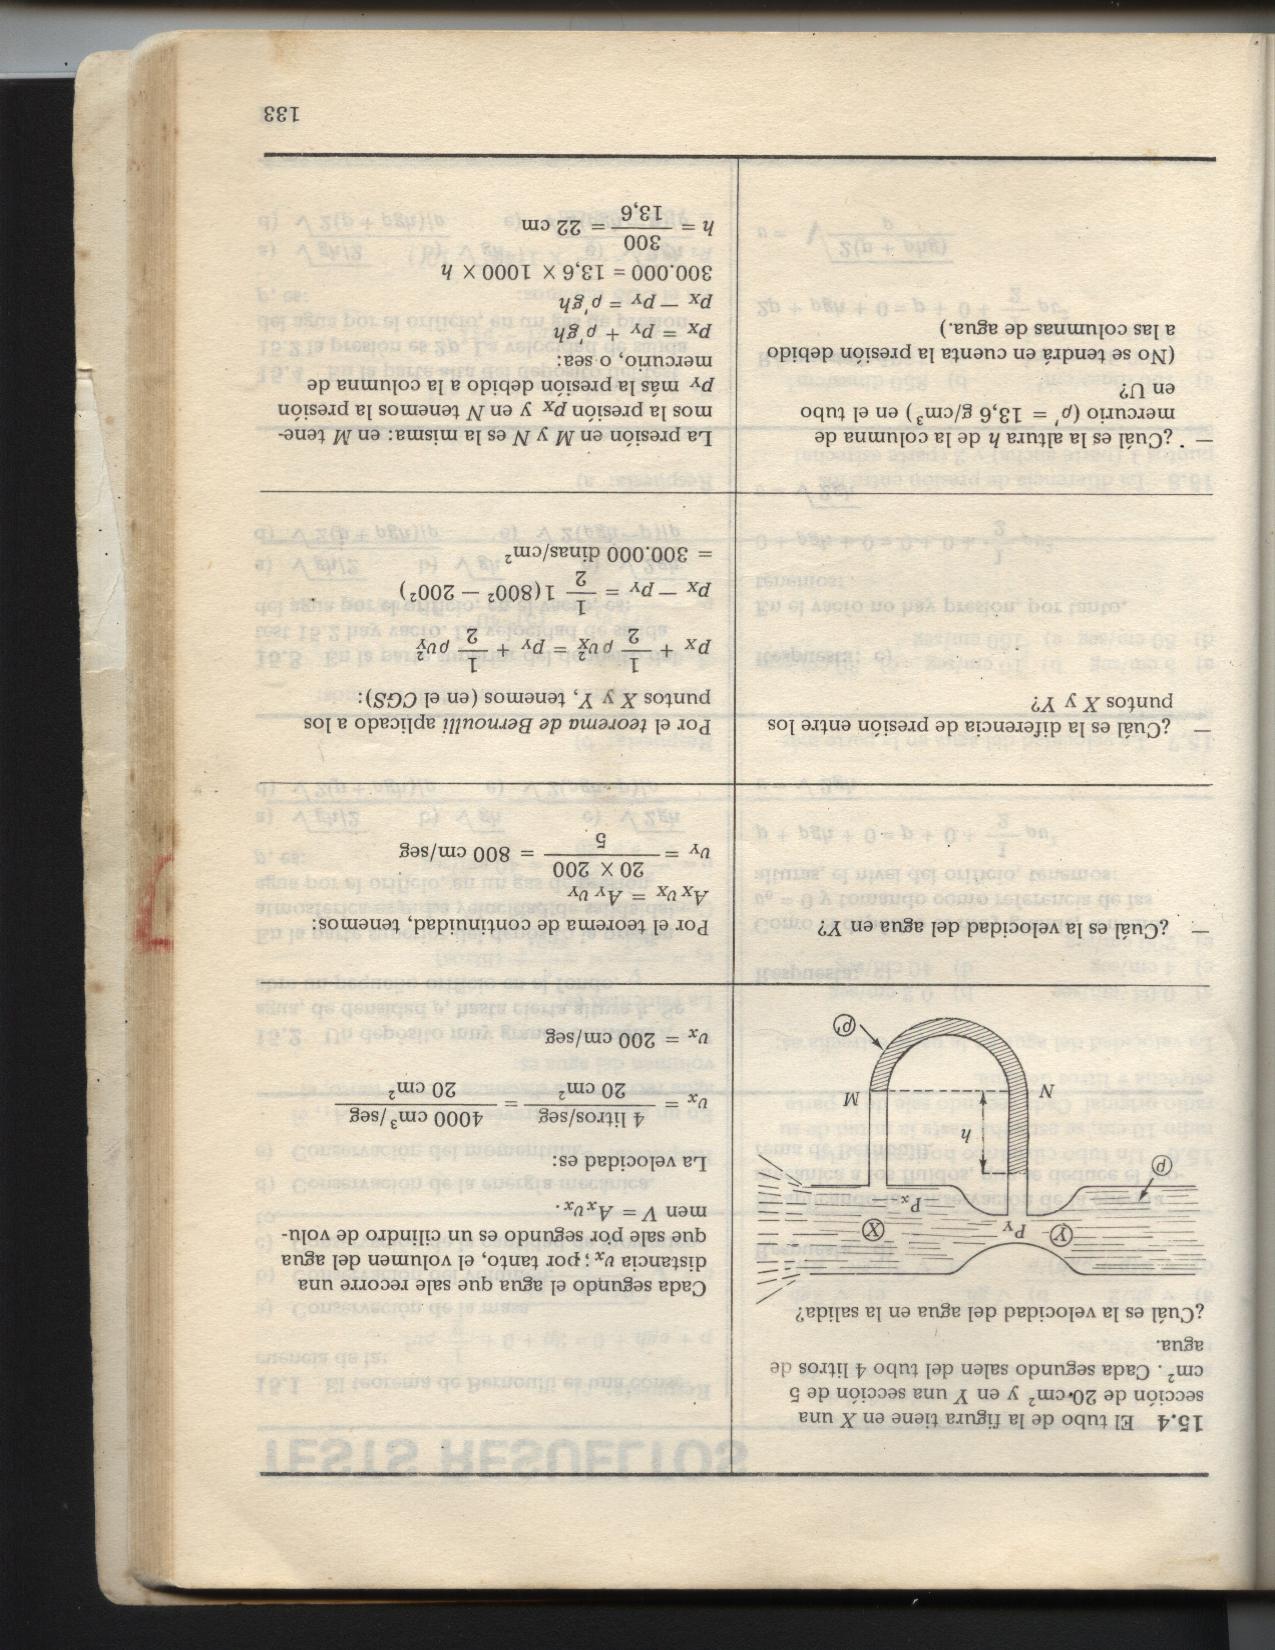 15.4 El tubo de la figura tiene en X una
sección de 20 cm² y en Y una sección de 5
cm². Cada segundo salen del tubo 4 litros de
agua.
¿Cuál es la velocidad del agua en la salida?
Y
PY
X
PX
ρ
h
N
M
ρ'
Cada segundo el agua que sale recorre una
distancia vx; por tanto, el volumen del agua
que sale por segundo es un cilindro de volu-
men V = Axvx.
La velocidad es:
vx = 4 litros/seg / 20 cm² = 4000 cm³/seg / 20 cm²
vx = 200 cm/seg
— ¿Cuál es la velocidad del agua en Y?
Por el teorema de continuidad, tenemos:
AX vX = AY vY
vY = 20 × 200 / 5 = 800 cm/seg
— ¿Cuál es la diferencia de presión entre los
puntos X y Y?
Por el teorema de Bernoulli aplicado a los
puntos X y Y, tenemos (en el CGS):
pX + 1/2 ρvX² = pY + 1/2 ρvY²
pX — pY = 1/2 1(800² — 200²)
= 300.000 dinas/cm²
— ¿Cuál es la altura h de la columna de
mercurio (ρ' = 13,6 g/cm³) en el tubo
en U?
(No se tendrá en cuenta la presión debido
a las columnas de agua.)
La presión en M y N es la misma: en M tene-
mos la presión pX y en N tenemos la presión
pY más la presión debido a la columna de
mercurio, o sea:
pX = pY + ρ'gh
pX — pY = ρ'gh
300.000 = 13,6 × 1000 × h
h = 300 / 13,6 = 22 cm
133